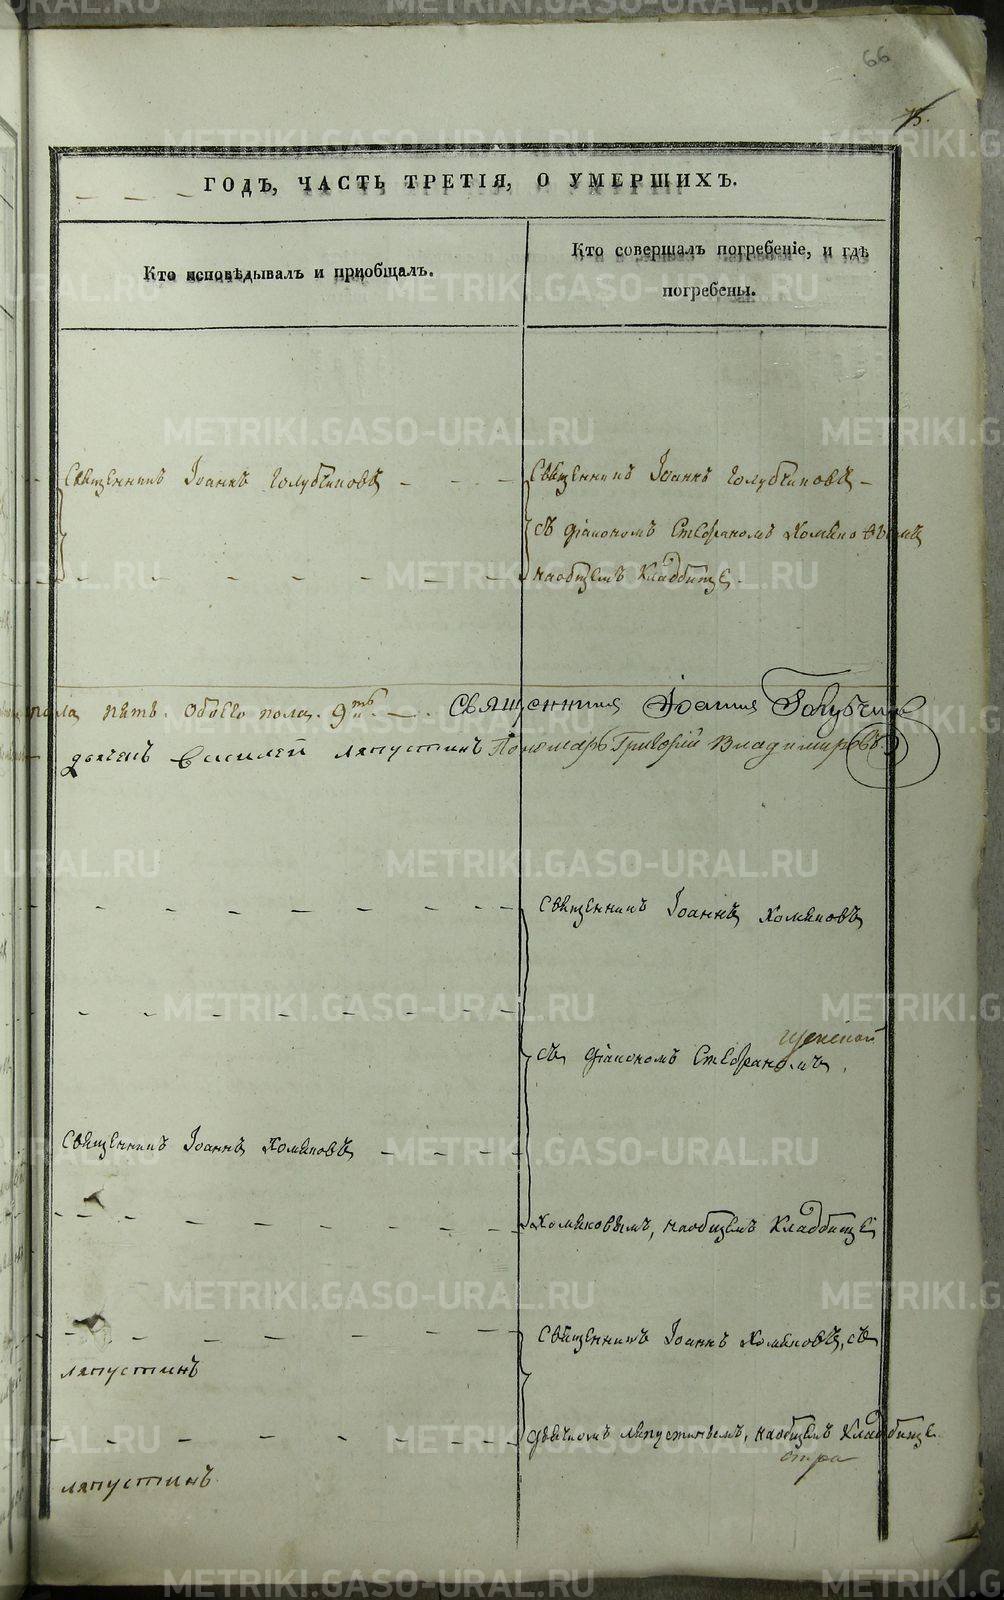 66
75.
ГОДЪ, ЧАСТЬ ТРЕТІЯ, О УМЕРШИХЪ.
Кто исповѣдывалъ и пріобщалъ.
Кто совершалъ погребеніе, и гдѣ
погребены.
Священникъ Іоаннъ Голубчиковъ
Священникъ Іоаннъ Голубчиковъ
съ діакономъ Стефаномъ Хомяковымъ
наобщемъ Кладбище.
пола пять. Обоего пола. 9ть. Священникъ Іоаннъ Голубчик
дячекъ Василей Ляпустинъ Пономарь Григорій Владимировъ
Священникъ Іоаннъ Хомяковъ
съ діакономъ Стефаномъ
Священникъ Іоаннъ Хомяковъ
Хомяковымъ, наобщемъ Кладбище
Священникъ Іоаннъ Хомяковъ, съ
Ляпустинъ
дьячкомъ Ляпустинымъ, наобщемъ Кладбище
Ляпустинъ
METRIKI.GASO-URAL.RU